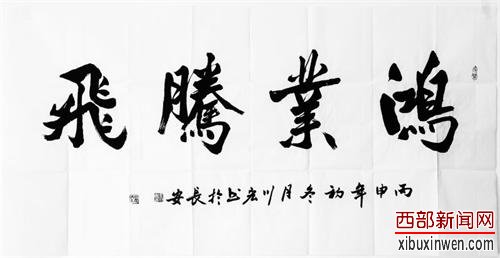 鴻業騰飛
丙申年初冬月川宏书於長安
西部新闻网
xibuxinwen.com